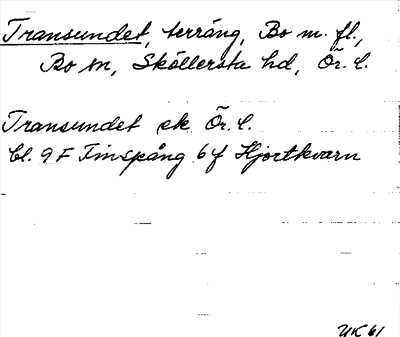 Transundet, terräng, Bo m. fl.,
Bo sn, Sköllersta hd, Ör. l.
Transundet ek Ör. l.
bl. 9F Finspång 6f Hjortkvarn
UK 61